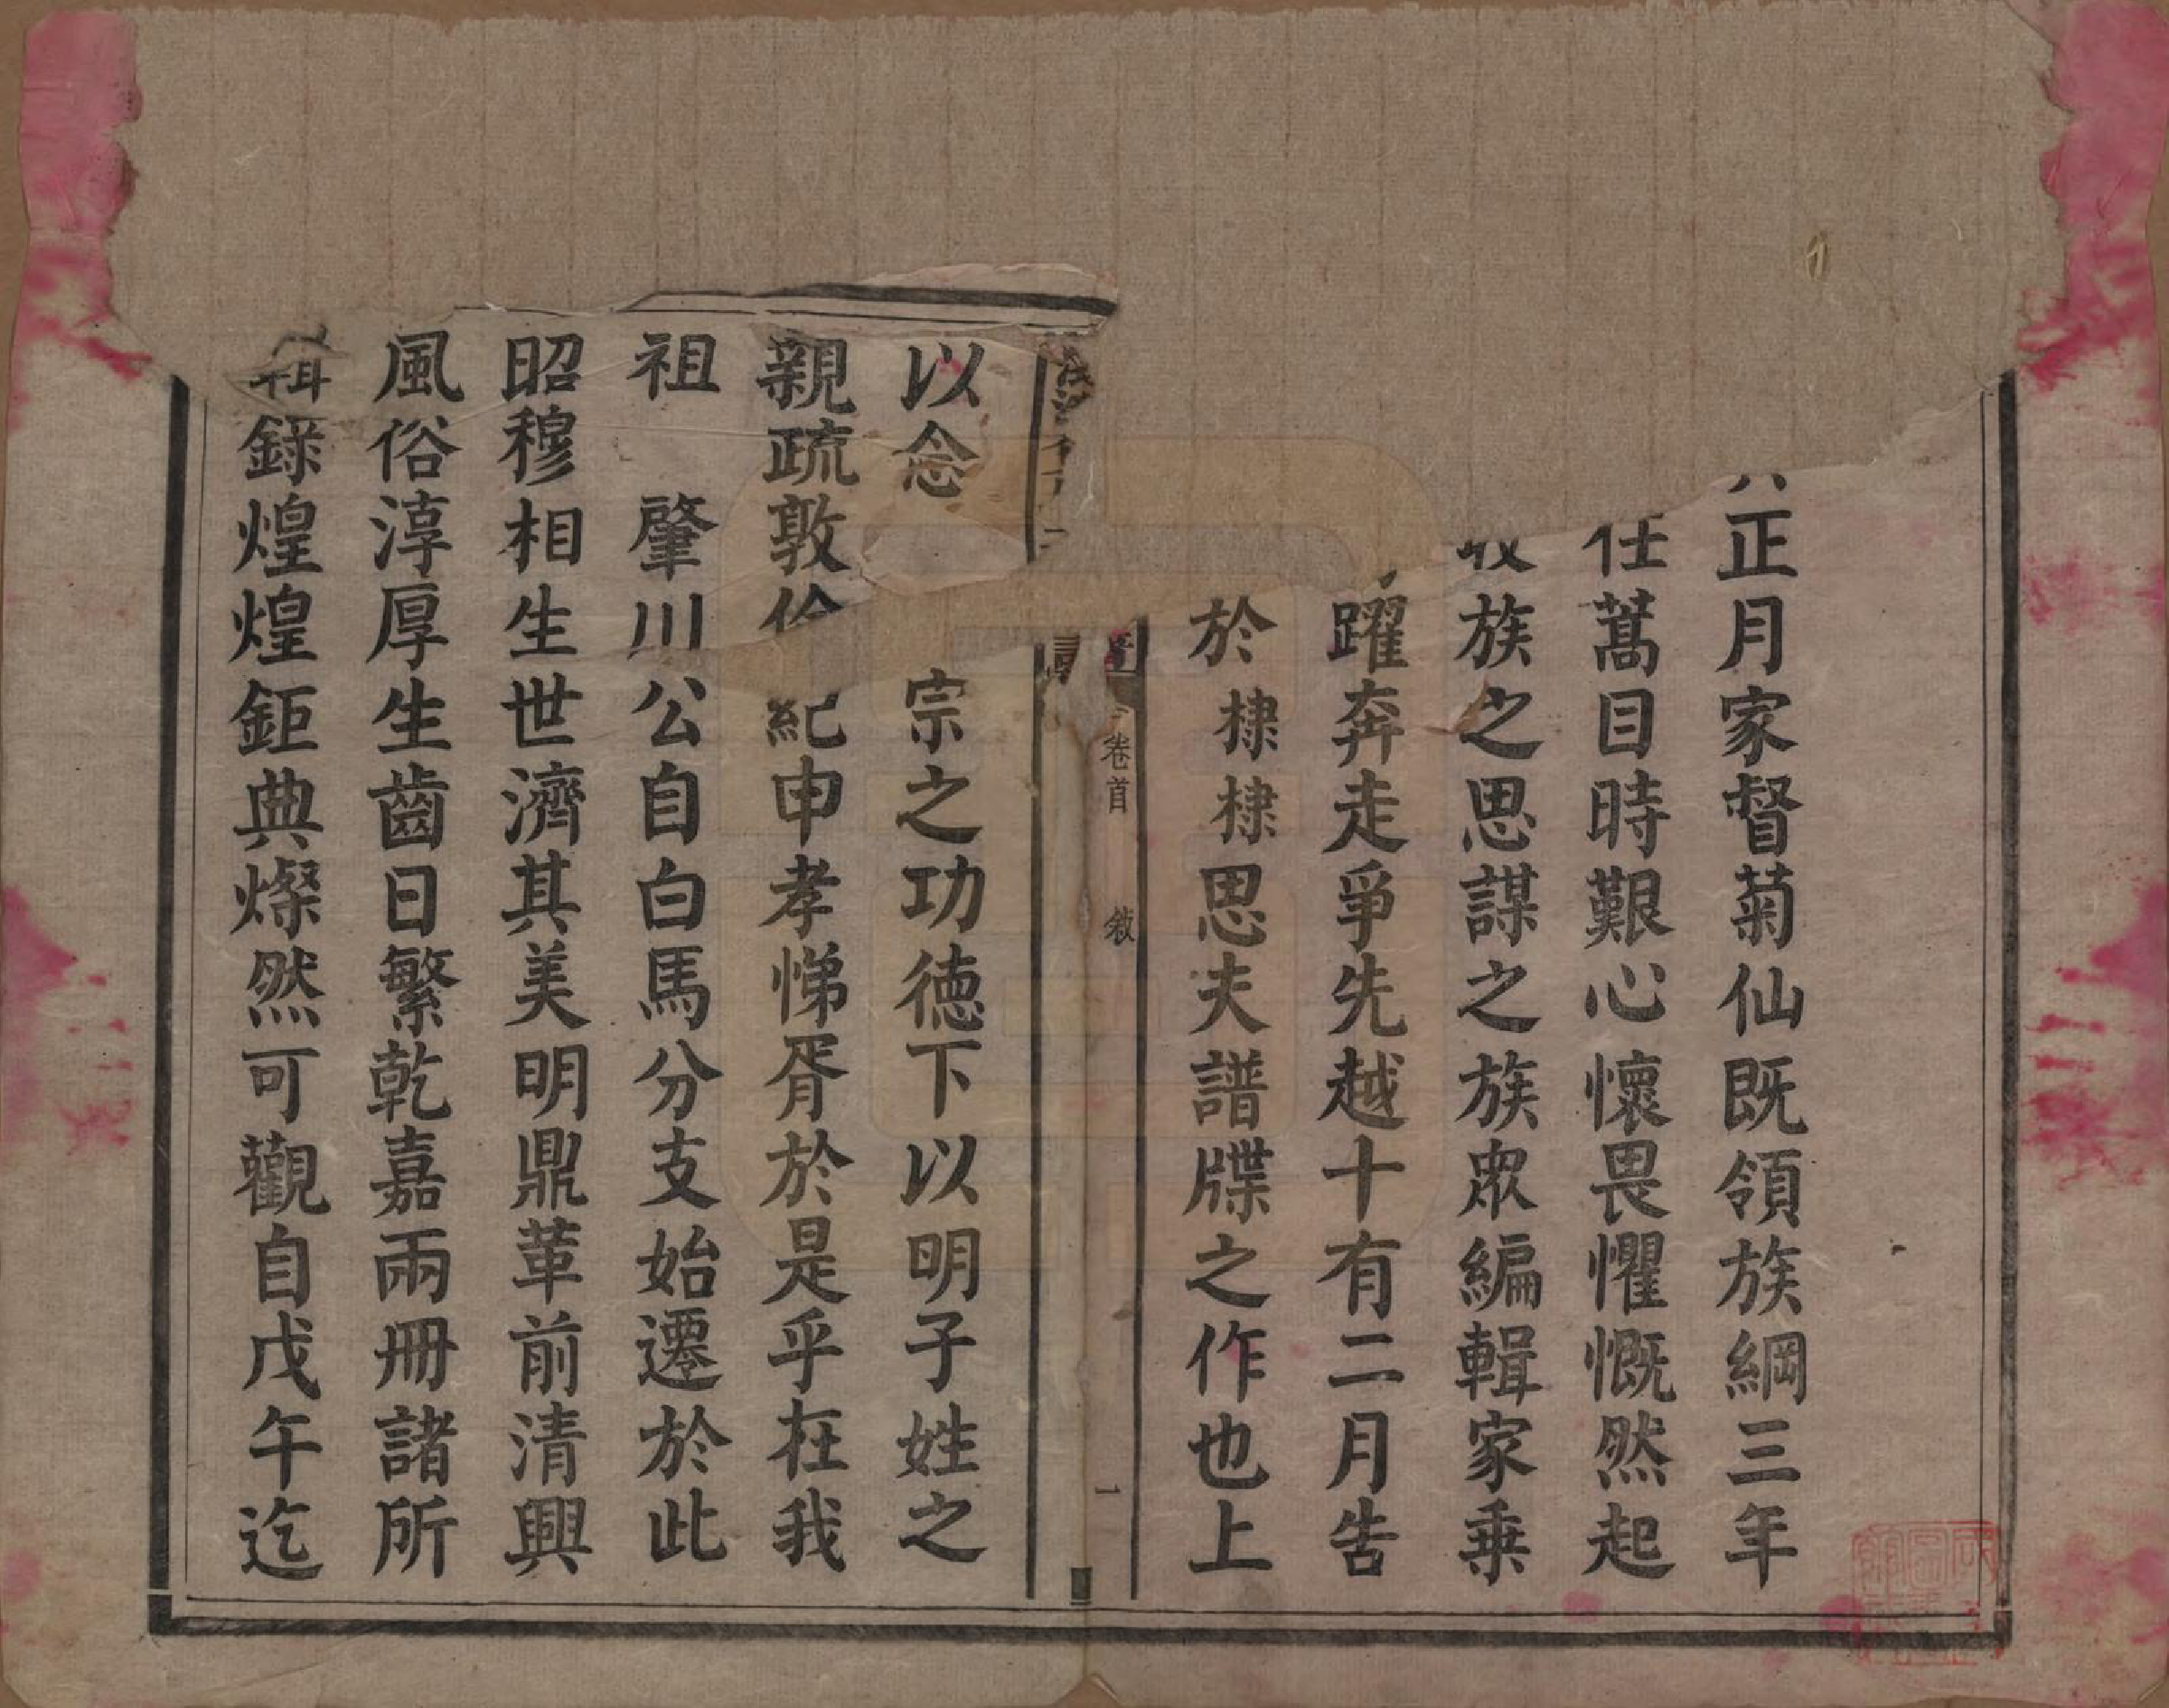 正月家督菊仙既領族綱三年
任蒿目時艱心懷畏懼慨然起
收族之思謀之族眾編輯家乗
躍奔走爭先越十有二月告
於棣棣思夫譜牒之作也上
卷首 敘 一
以念 宗之功德下以明子姓之
親疏敦倫紀申孝悌胥於是乎在我
祖 肇川公自白馬分支始遷於此
昭穆相生世濟其美明鼎革前清興
風俗淳厚生齒日繁乾嘉兩冊諸所
輯錄煌煌鉅典燦然可觀自戊午迄